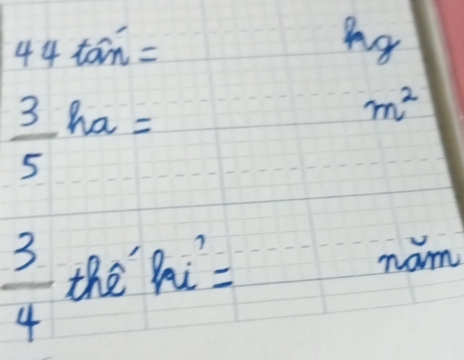 44 tấn = kg
3/5 ha = m²
3/4 thế kỉ = năm